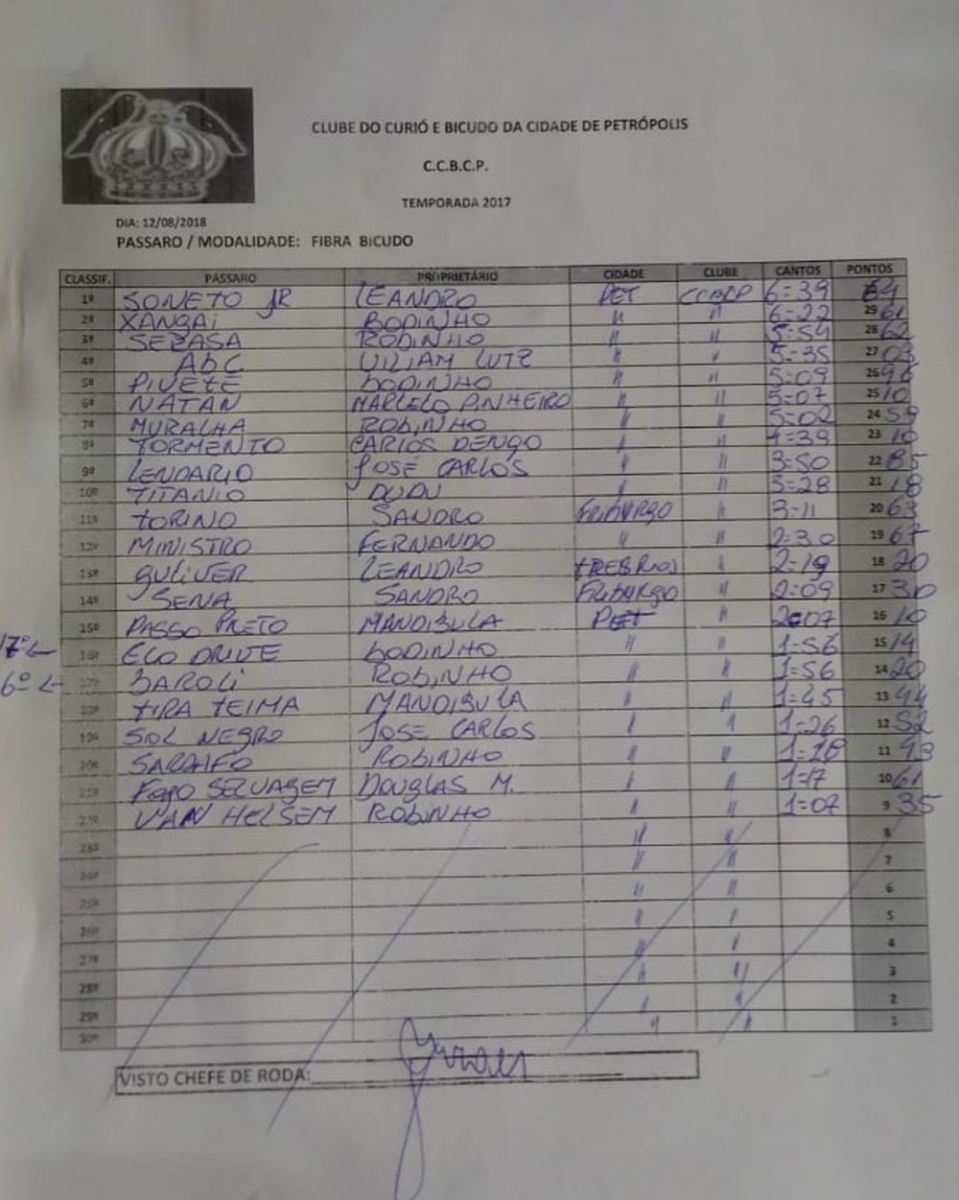 CLUBE DO CURIÓ E BICUDO DA CIDADE DE PETRÓPOLIS
C.C.B.C.P.
TEMPORADA 2017
DIA: 12/08/2018
PASSARO / MODALIDADE: FIBRA BICUDO
CLASSIF. PÁSSARO PROPRIETÁRIO CIDADE CLUBE CANTOS PONTOS
1º SONETO JR LEANDRO PET CCBCP 6=39
2º XANGAI BODINHO " " 6=22 29 61
3º SERASA RODINHO " " 5=54 28 62
4º AbC UILIAM LUTZ " " 5=35 27 03
5º PIVETE BODINHO " " 5=09 26 96
6º NATAN MARCELO PINHEIRO " " 5=07 25 10
7º MURALHA ROBINHO " " 5=02 24 59
8º TORMENTO CARLOS DENGO " " 4=39 23 10
9º LENDARIO JOSÉ CARLOS " " 3=50 22 85
10º TITANIO DUDU " " 3=28 21 18
11º TORINO SANDRO FRIBURGO " 3=11 20 63
12º MINISTRO FERNANDO " " 2=30 19 67
13º GULIVER LEANDRO TRES RIOS " 2=19 18 20
14º SENA SANDRO FRIBURGO " 2=09 17 30
15º PASSO PRETO MANDIBULA PET " 2=07 16 10
17º ← 16º ECO DRIVE BODINHO " " 1=56 15 14
6º ← 17º BAROLI ROBINHO " " 1=56 14 20
18º TIRA TEIMA MANDIBULA " " 1=45 13 44
19º SOL NEGRO JOSE CARLOS " " 1=26 12 52
20º ROBINHO " " 1=18 11 93
21º FOGO SELVAGEM DOUGLAS M. " " 1=17 10 61
23º VAN HELSEM ROBINHO " " 1=07 9 35
23º " " 8
24º " " 7
25º " " 6
26º " " 5
27º " " 4
28º " " 3
29º " " 2
30º " " 1
VISTO CHEFE DE RODA: